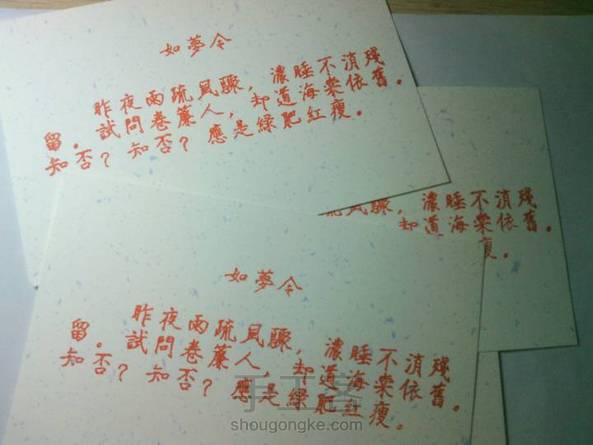 如夢令
昨夜雨疏風驟，濃睡不消殘
留。試問卷簾人，却道海棠依舊。
知否？知否？應是綠肥紅瘦。
風驟，濃睡不消殘
却道海棠依舊。
瘦。
如夢令
昨夜雨疏風驟，濃睡不消殘
留。試問卷簾人，却道海棠依舊。
知否？知否？應是綠肥紅瘦。
手工客
shougongke.com